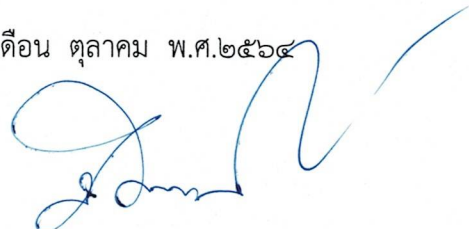 ดือน ตุลาคม พ.ศ.๒๕๖๔